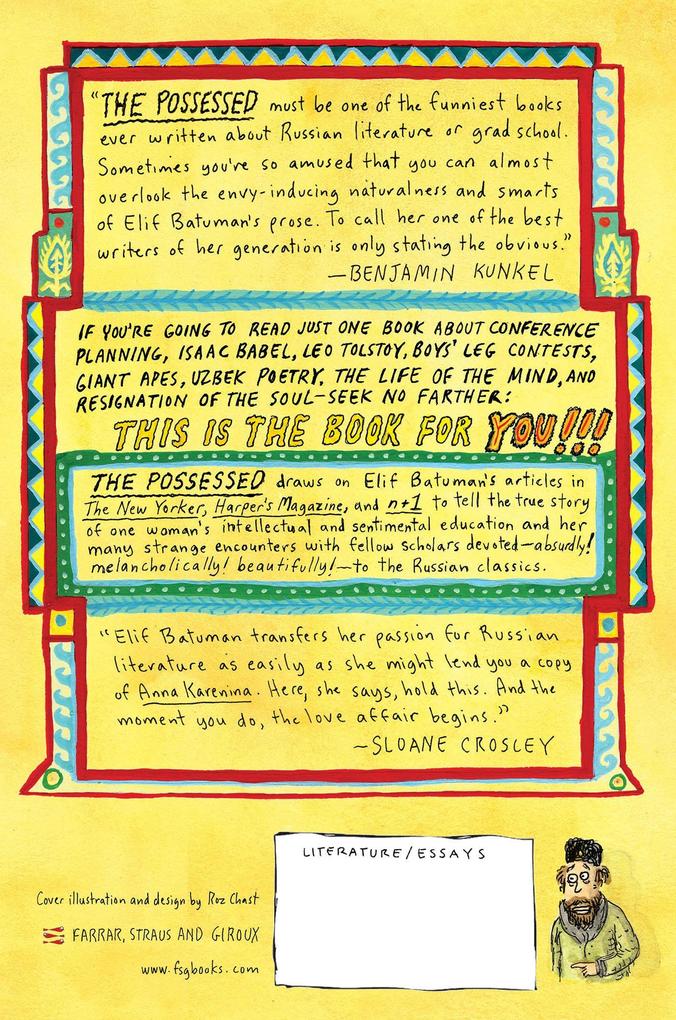 "THE POSSESSED must be one of the funniest books
ever written about Russian literature or grad school.
Sometimes you're so amused that you can almost
overlook the envy-inducing naturalness and smarts
of Elif Batuman's prose. To call her one of the best
writers of her generation is only stating the obvious."
—BENJAMIN KUNKEL
IF YOU'RE GOING TO READ JUST ONE BOOK ABOUT CONFERENCE
PLANNING, ISAAC BABEL, LEO TOLSTOY, BOYS' LEG CONTESTS,
GIANT APES, UZBEK POETRY, THE LIFE OF THE MIND, AND
RESIGNATION OF THE SOUL—SEEK NO FARTHER:
THIS IS THE BOOK FOR YOU!!!
THE POSSESSED draws on Elif Batuman's articles in
The New Yorker, Harper's Magazine, and n+1 to tell the true story
of one woman's intellectual and sentimental education and her
many strange encounters with fellow scholars devoted—absurdly!
melancholically! beautifully!—to the Russian classics.
"Elif Batuman transfers her passion for Russian
literature as easily as she might lend you a copy
of Anna Karenina. Here, she says, hold this. And the
moment you do, the love affair begins."
~SLOANE CROSLEY
LITERATURE/ESSAYS
Cover illustration and design by Roz Chast
FARRAR, STRAUS AND GIROUX
www.fsgbooks.com